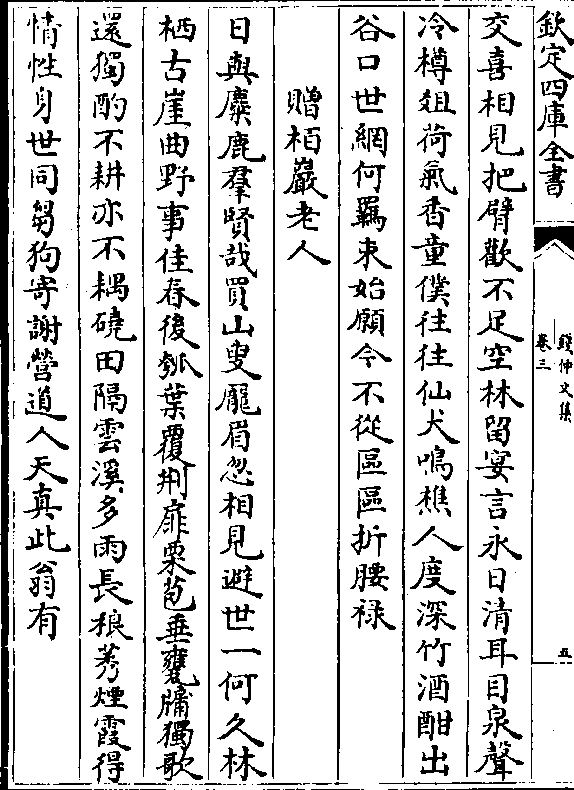 欽定四庫全書
錢仲文集
卷三
五
交喜相見把臂歡不足空林留宴言永日清耳目泉聲
冷樽俎荷氣香童僕往往仙犬鳴樵人度深竹酒酣出
谷口世網何羈束始願今不從區區折腰禄
贈柏巖老人
日與麋鹿羣賢哉買山叟龎眉忽相見避世一何久林
栖古崖曲野事佳春後瓠葉覆荆扉栗苞垂甕牖獨歌
還獨酌不耕亦不耦磽田隔雲溪多雨長稂莠煙霞得
情性身世同芻狗寄謝營道人天真此翁有